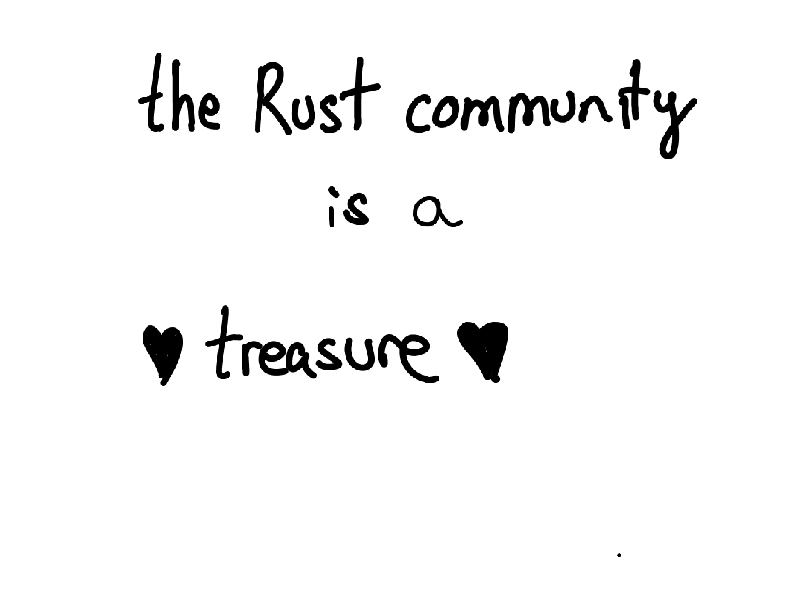 the Rust community
is a
♥ treasure ♥